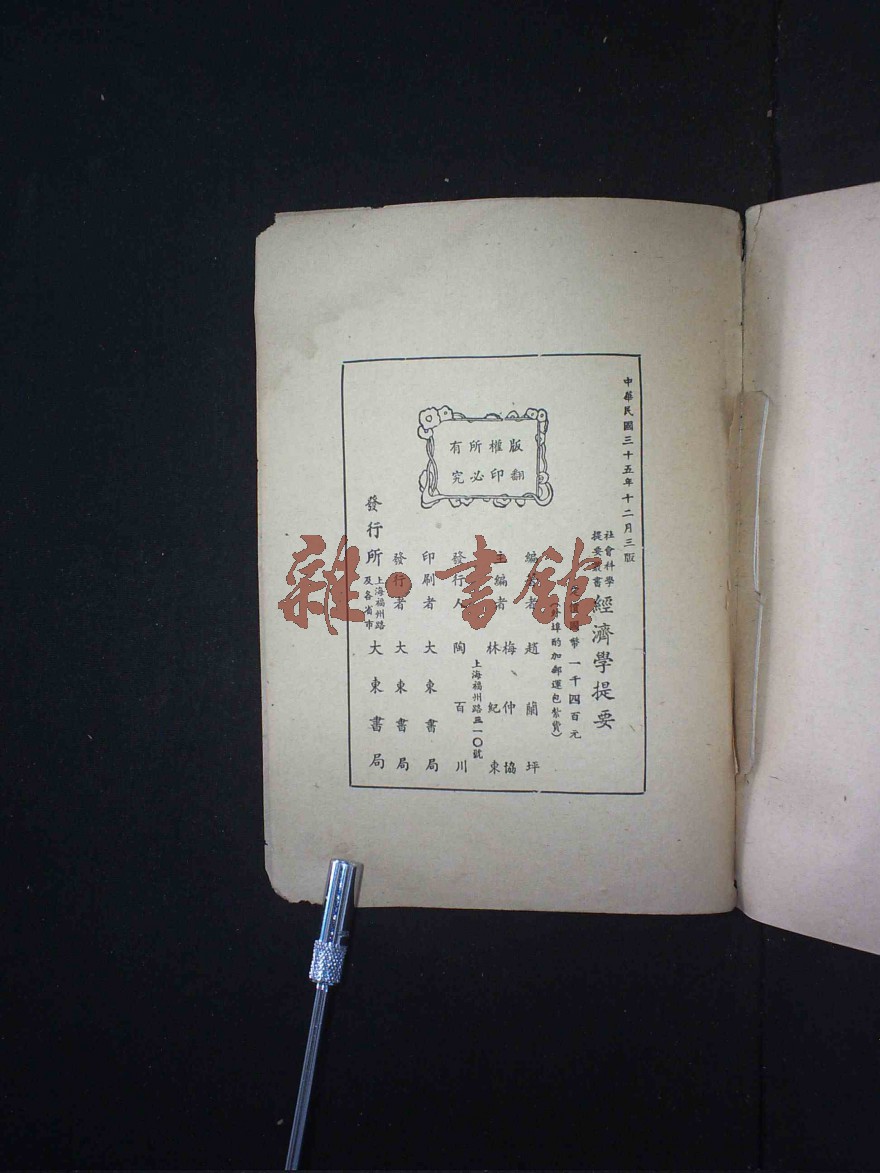 中華民國三十五年十二月三版
社會科學
提要叢書
經濟學提要
定價國幣一千四百元
(外埠酌加郵運包紮費)
版權所有
翻印必究
編著者 趙蘭坪
主編者 梅仲協
林紀東
上海福州路三一〇號
發行人 陶百川
印刷者 大東書局
發行者 大東書局
發行所 上海福州路
及各省市 大東書局
雜·書館